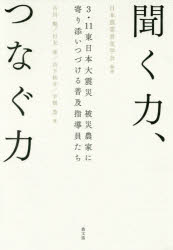 聞く力、
日本農業普及学会 編著
3・11東日本大震災 被災農家に
寄り添いつづける普及指導員たち
古川 勉・行友 弥・山下祐介・宇根 豊 著
つなぐ力
農文協